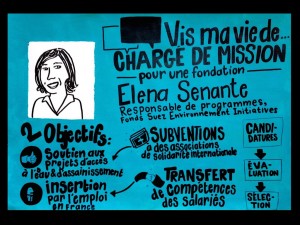 Vis ma vie de...
CHARGÉ DE MISSION
pour une fondation
Elena Senante
Responsable de programmes,
Fonds Suez Environnement Initiatives
2 Objectifs:
Soutien aux
projets d'accès
à l'eau & d'assainissement
insertion
par l'emploi
en France
SUBVENTIONS
à des associations
de solidarité internationale
TRANSFERT
de compétences
des salariés
CANDI-
DATURES
ÉVA-
LUATION
SÉLEC-
TION